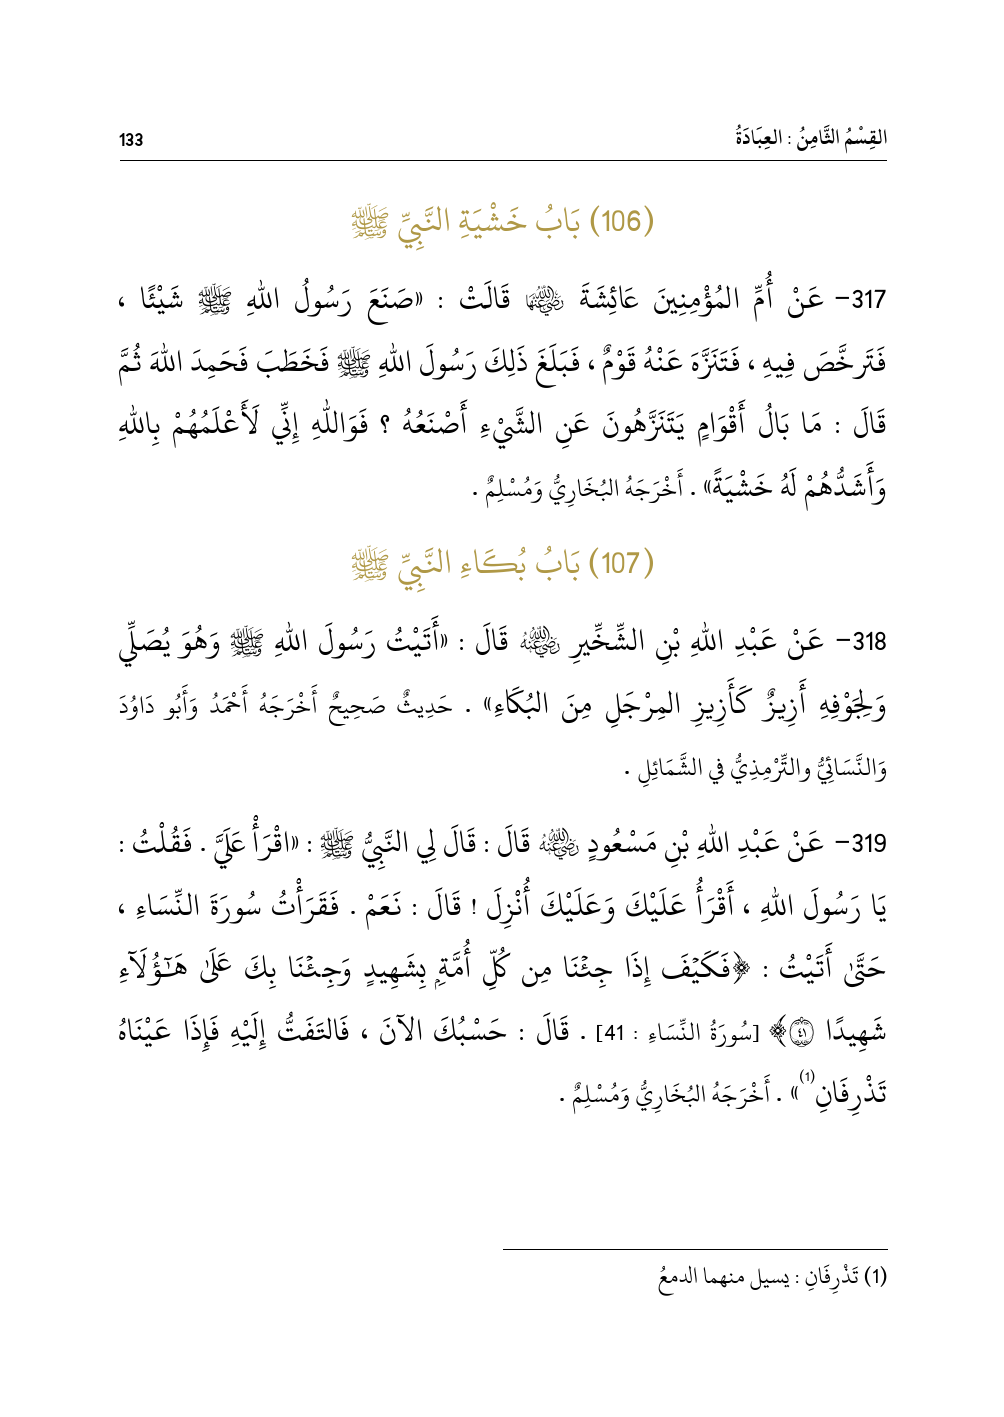 القِسْمُ الثَّامِنُ : العِبَادَةُ 133
(106) بَابُ خَشْيَةِ النَّبِيِّ ﷺ
317- عَنْ أُمِّ المُؤْمِنِينَ عَائِشَةَ رَضِيَ اللهُ عَنْهَا قَالَتْ : «صَنَعَ رَسُولُ اللهِ ﷺ شَيْئًا ،
فَتَرخَّصَ فِيهِ ، فَتَنَزَّهَ عَنْهُ قَوْمٌ ، فَبَلَغَ ذَلِكَ رَسُولَ اللهِ ﷺ فَخَطَبَ فَحَمِدَ اللهَ ثُمَّ
قَالَ : مَا بَالُ أَقْوَامٍ يَتَنَزَّهُونَ عَنِ الشَّيْءِ أَصْنَعُهُ ؟ فَوَاللهِ إِنِّي لَأَعْلَمُهُمْ بِاللهِ
وَأَشَدُّهُمْ لَهُ خَشْيَةً» . أَخْرَجَهُ البُخَارِيُّ وَمُسْلِمٌ .
(107) بَابُ بُكَاءِ النَّبِيِّ ﷺ
318- عَنْ عَبْدِ اللهِ بْنِ الشِّخِّيرِ رَضِيَ اللهُ عَنْهُ قَالَ : «أَتَيْتُ رَسُولَ اللهِ ﷺ وَهُوَ يُصَلِّي
وَلِجَوْفِهِ أَزِيزٌ كَأَزِيزِ المِرْجَلِ مِنَ البُكَاءِ» . حَدِيثٌ صَحِيحٌ أَخْرَجَهُ أَحْمَدُ وَأَبُو دَاوُدَ
وَالنَّسَائِيُّ والتِّرْمِذِيُّ في الشَّمَائِلِ .
319- عَنْ عَبْدِ اللهِ بْنِ مَسْعُودٍ رَضِيَ اللهُ عَنْهُ قَالَ : قَالَ لِي النَّبِيُّ ﷺ : «اقْرَأْ عَلَيَّ . فَقُلْتُ :
يَا رَسُولَ اللهِ ، أَقْرَأُ عَلَيْكَ وَعَلَيْكَ أُنْزِلَ ! قَالَ : نَعَمْ . فَقَرَأْتُ سُورَةَ النِّسَاءِ ،
حَتَّى أَتَيْتُ : ﴿فَكَيْفَ إِذَا جِئْنَا مِن كُلِّ أُمَّةٍۭ بِشَهِيدٍ وَجِئْنَا بِكَ عَلَىٰ هَٰٓؤُلَآءِ
شَهِيدًا ٤١﴾ [سُورَةُ النِّسَاءِ : 41] . قَالَ : حَسْبُكَ الآنَ ، فَالتَفَتُّ إِلَيْهِ فَإِذَا عَيْنَاهُ
تَذْرِفَانِ(1)» . أَخْرَجَهُ البُخَارِيُّ وَمُسْلِمٌ .
(1) تَذْرِفَانِ : يسيل منهما الدمعُ